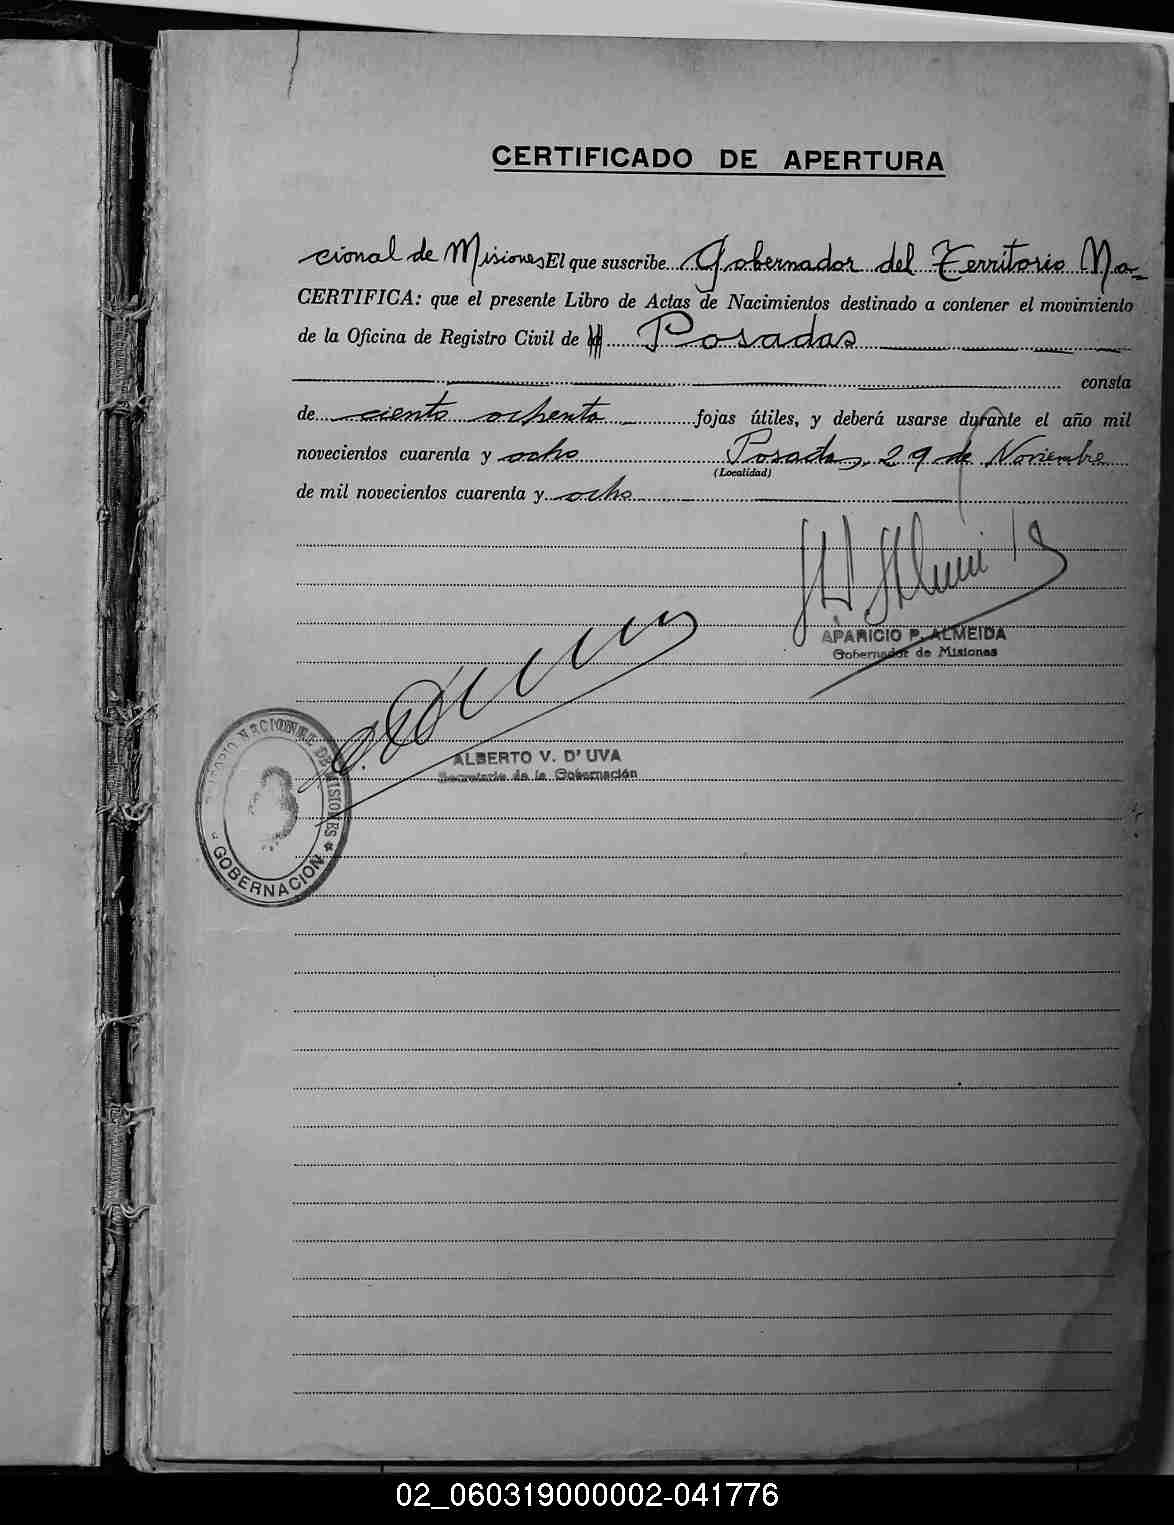 CERTIFICADO DE APERTURA
cional de Misiones El que suscribe Gobernador del Territorio Na-
CERTIFICA: que el presente Libro de Actas de Nacimientos destinado a contener el movimiento
de la Oficina de Registro Civil de Posadas
consta
de ciento ochenta fojas útiles, y deberá usarse durante el año mil
novecientos cuarenta y ocho Posadas, 29 de Noviembre
(Localidad)
de mil novecientos cuarenta y ocho
APARICIO P. ALMEIDA
Gobernador de Misiones
ALBERTO V. D'UVA
Secretario de la Gobernación
TERRITORIO NACIONAL DE MISIONES
GOBERNACION
02_060319000002-041776